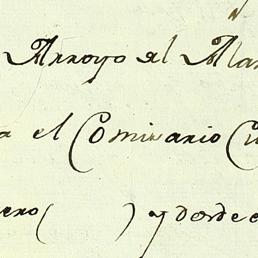 Arroyo el Ala
a el Comisario C
ero( ) y donde